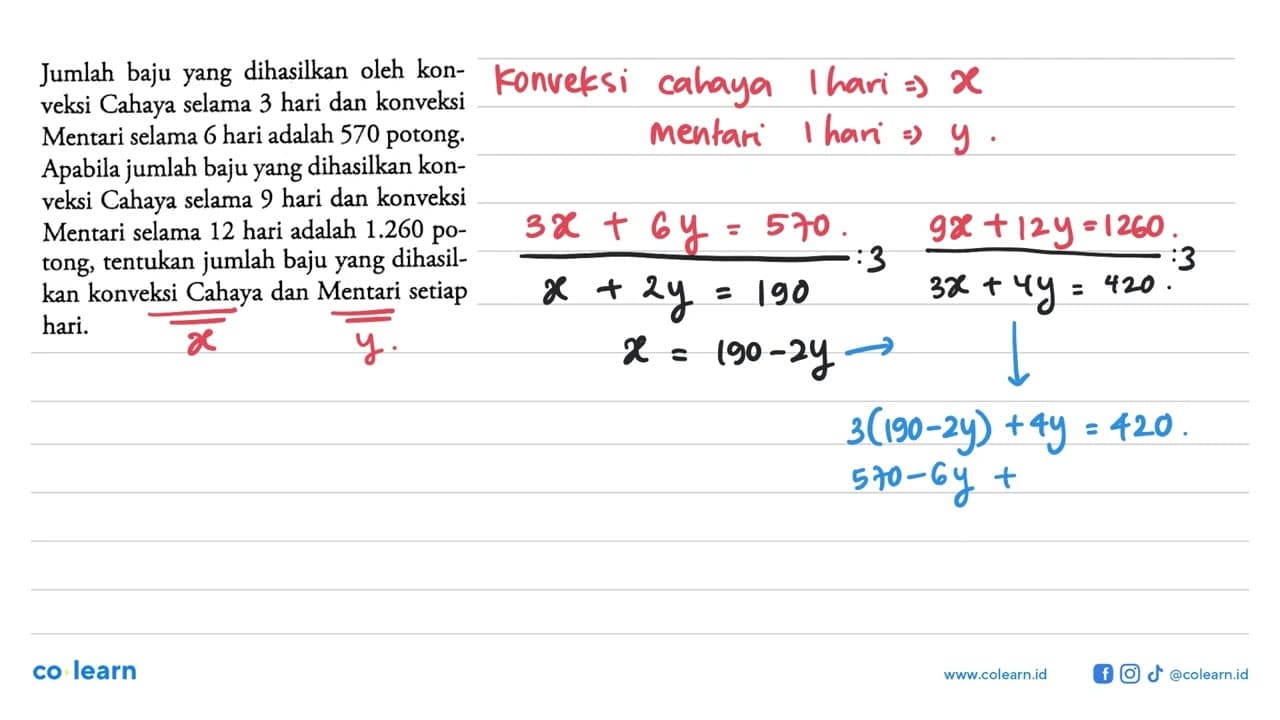 Jumlah baju yang dihasilkan oleh kon-
veksi Cahaya selama 3 hari dan konveksi
Mentari selama 6 hari adalah 570 potong.
Apabila jumlah baju yang dihasilkan kon-
veksi Cahaya selama 9 hari dan konveksi
Mentari selama 12 hari adalah 1.260 po-
tong, tentukan jumlah baju yang dihasil-
kan konveksi Cahaya dan Mentari setiap
hari.
x y.
Konveksi cahaya 1 hari => x
mentari 1 hari => y.
3x + 6y = 570. :3
x + 2y = 190
x = 190 - 2y →
9x + 12y = 1260. :3
3x + 4y = 420.
3(190 - 2y) + 4y = 420.
570 - 6y +
co learn
www.colearn.id
@colearn.id